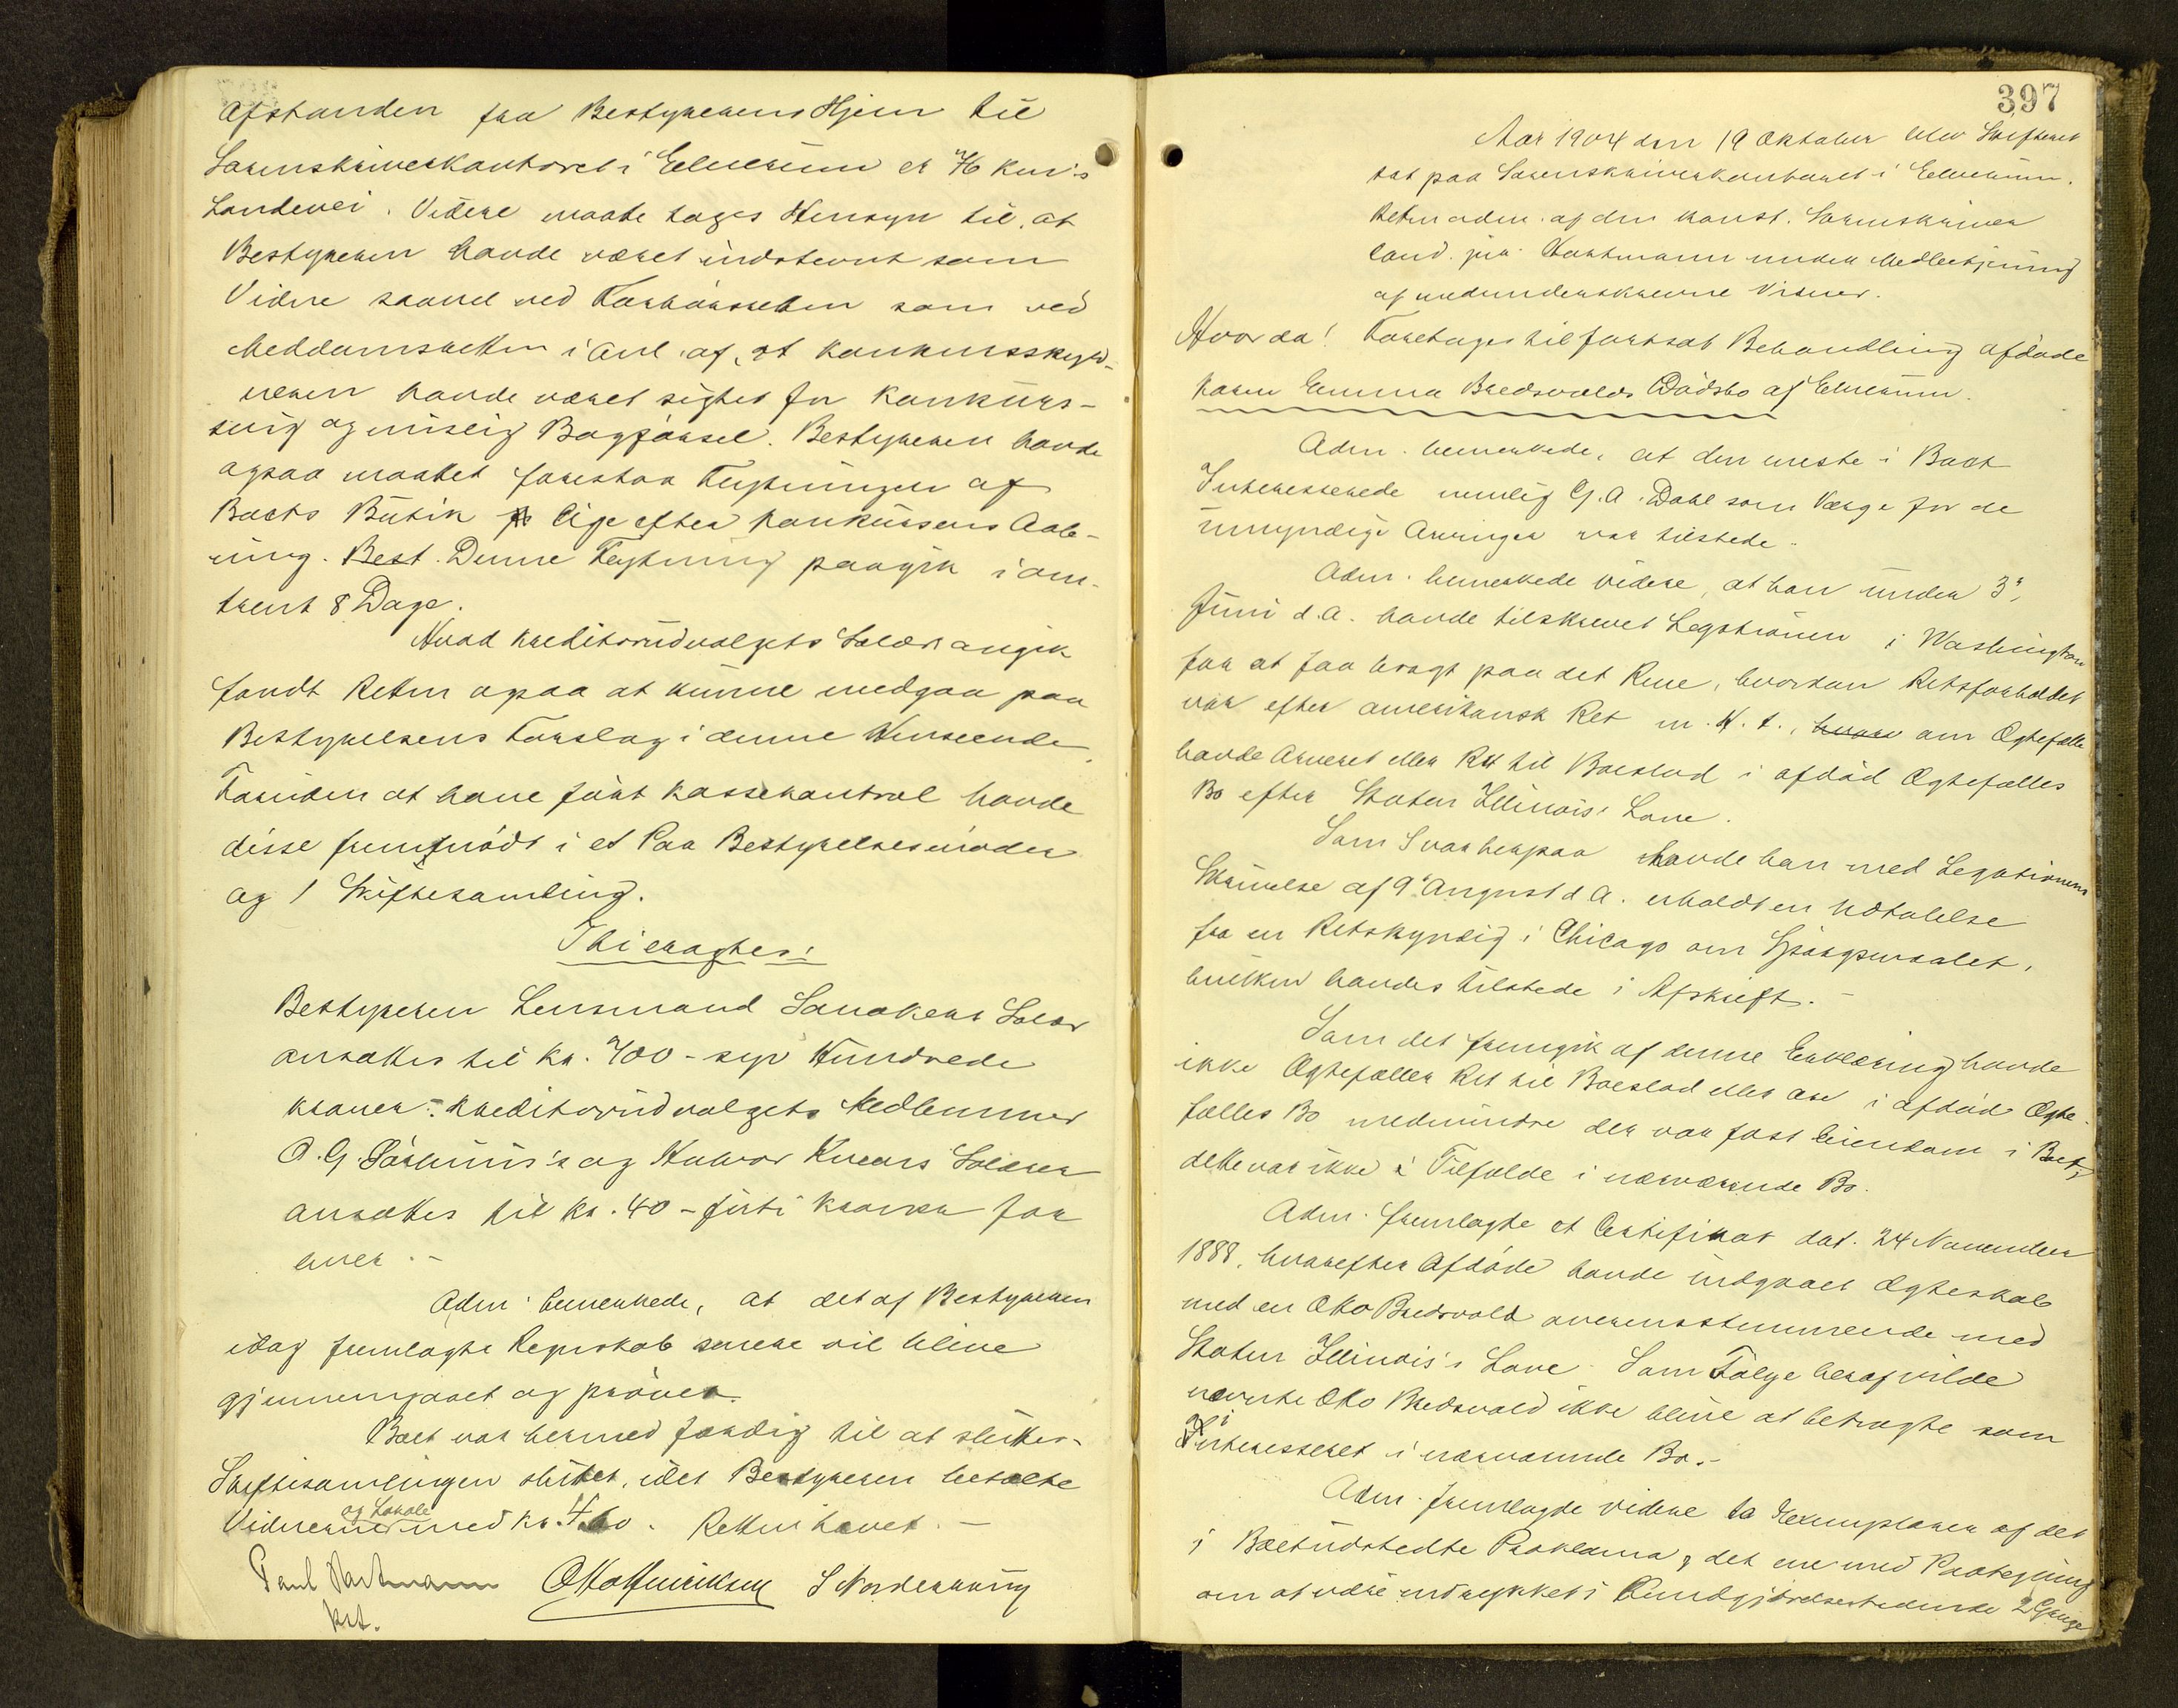 Afstanden fra Bestyrerens Hjem til
Sorenskriverkontoret i Elverum er 76 km's
Landevei. Videre maate tages Hensyn til, at
Bestyreren havde været indstevnt som
Vidne saavel ved Forhørsretten som ved
Meddomsretten i Anl. af, at Konkursskyld-
neren havde været sigtet for Konkurs-
svig og misvig Bogførsel. Bestyreren havde
ogsaa maattet forestaa Flytningen af
Boets Butik lige efter Konkursens Aab-
ning. Best. Denne Flytning paagik i om-
trent 8 Dage.
Hvad Kreditorudvalgets Salær angik
fandt Retten ogsaa at kunne medgaa paa
Bestyrelsens Forslag i denne Henseende.
Foruden at have ført Kassekontrol havde
disse fremmødt i et Par Bestyrelsesmøder
og 1 Skiftesamling.
Thi eragtes:
Bestyreren Lensmand Sanakers Salær
ansættes til kr. 700 - syv Hundrede
kroner. Kreditorudvalgets Medlemmer
O. G. Halvor Salærer
ansættes til kr. 40 - førti Kroner for
hver. -
Adm. bemerkede, at det af Bestyreren
idag fremlagte Regnskab senere vil blive
gjennemgaaet og prøvet.
Boet var hermed færdig til at sluttes.
Skiftesamlingen sluttet, idet Bestyreren betalte
og Lokale
Vidnerne med kr. 4.60. Retten hævet. -
Paul Hartmann Otto Henriksen S Nordenhaug
kst.
397
Aar 1904 den 19 Oktober blev Skifteret
sat paa Sorenskriverkontoret i Elverum.
Retten adm. af den konst. Sorenskriver
Cand. jur. Hartmann under Medbetjening
af medunderskrevne Vidner.
Hvor da! Foretages til fortsat Behandling afdøde
Karen Emma Bredsvolds Dødsbo af Elverum.
Adm. bemerkede, at den meste i Boet
Interesserede nemlig G. A. Dahl som Værge for de
umyndige Arvinger var tilstede.
Adm. bemerkede videre, at han under 3'
Juni d.A. havde tilskrevet Legationen i Washington
for at faa bragt paa det Rene, hvordan Retsforholdet
var efter amerikansk Ret m. H. t., hvor om Ægtefælle
havde Arveret eller Ret til Boeslod i afdød Ægtefælles
Bo efter Staten Illinois' Love.
Som Svar herpaa havde han med Legationens
Skrivelse af 9' August d A. erholdt en Udtalelse
fra en Retskyndig i Chicago om Spørgsmaalet,
hvilken havdes tilstede i Afskrift. -
Som det fremgik af denne Erklæring havde
ikke Ægtefæller Ret til Boeslod eller Arv i afdød Ægte-
fælles Bo medmindre der var fast Eiendom i Boet,
dette var ikke i Tilfælde i nærværende Bo.
Adm. fremlagte et Certifikat dat. 24 November
1888, hvorefter Afdøde havde indgaaet Ægteskab
med en Otto Bredsvold overensstemmende med
Staten Illinois's Love. Som Følge heraf vilde
nævnte Otto Bredsvold ikke blive at betragte som
Interesseret i nærværende Bo. -
Adm. fremlagde videre to Exemplarer af det
i Boet udstedte Proklama, det ene med Paategning
om at være indrykket i Kundgjørelsestidende 2 Gange